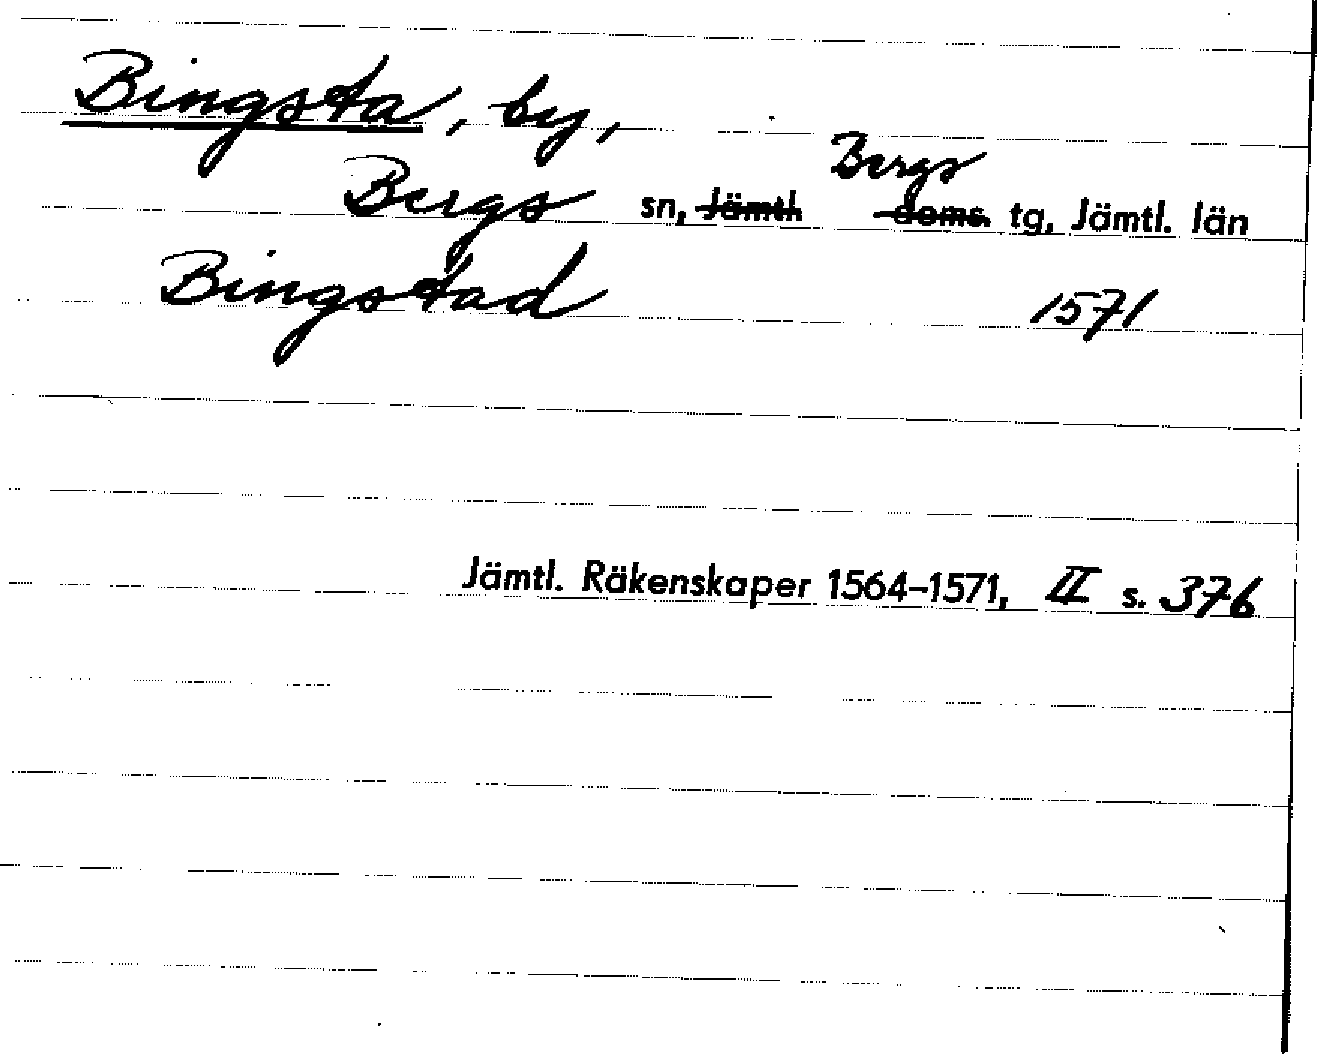 Bingsta, by,
Bergs
Bergs sn, Jämtl. doms. tg, Jämtl. län
Bingstad 1571
Jämtl. Räkenskaper 1564–1571, II s. 376